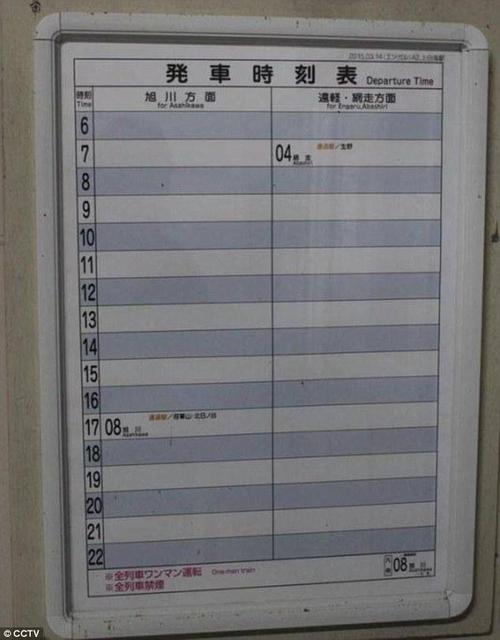 2015.03.14
発車時刻表 Departure Time
時刻 Time
旭川方面 for Asahikawa
遠軽・網走方面 for Engaru,Abashiri
6
7 04 網走 Abashiri 通過駅/生野
8
9
10
11
12
13
14
15
16
17 08 旭川 Asahikawa 通過駅
18
19
20
21
22
※全列車ワンマン運転 One-man train
※全列車禁煙
08 旭川
© CCTV